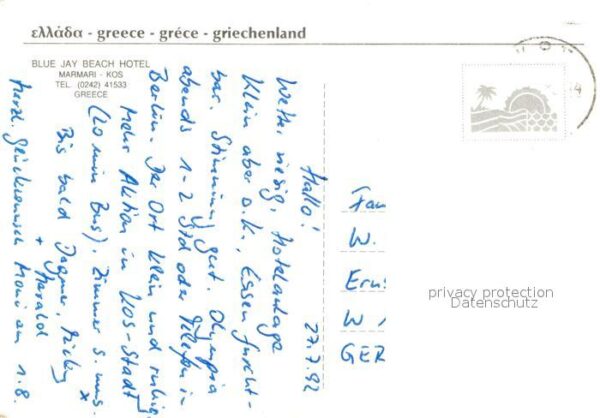 ελλάδα - greece - gréce - griechenland
BLUE JAY BEACH HOTEL
MARMARI - KOS
TEL. (0242) 41533
GREECE
27.7.92
Hallo!
Wetter riesig, Hotelanlage
Klein aber o.k., Essen furcht-
bar. Stimmung gut. Olympia
abends 1-2 Std oder Telefon in
Berlin. Der Ort klein und ruhig,
Mehr Aktion in KOS-Stadt
(20 min Bus). Zimmer s.
Bis bald Dagmar,
+ Harald
x
herzl. Glückwunsch Moni am 1.8.
Fam
W.
Erns
W
GER
privacy protection
Datenschutz